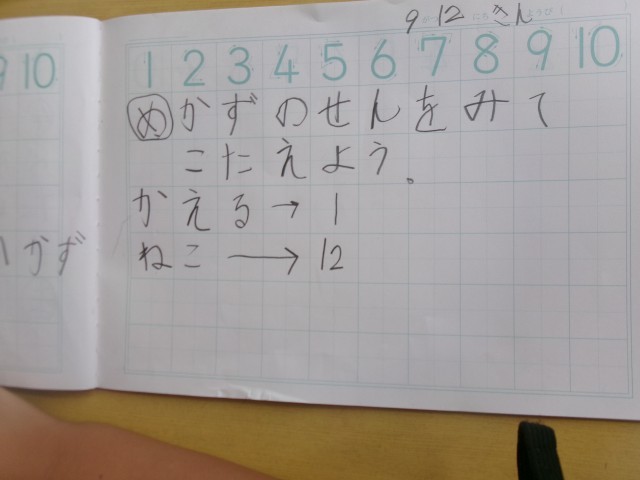 9 10
いかず
9がつ12にち きんようび
1 2 3 4 5 6 7 8 9 10
め かずのせんをみて
こたえよう。
かえる→1
ねこ→12